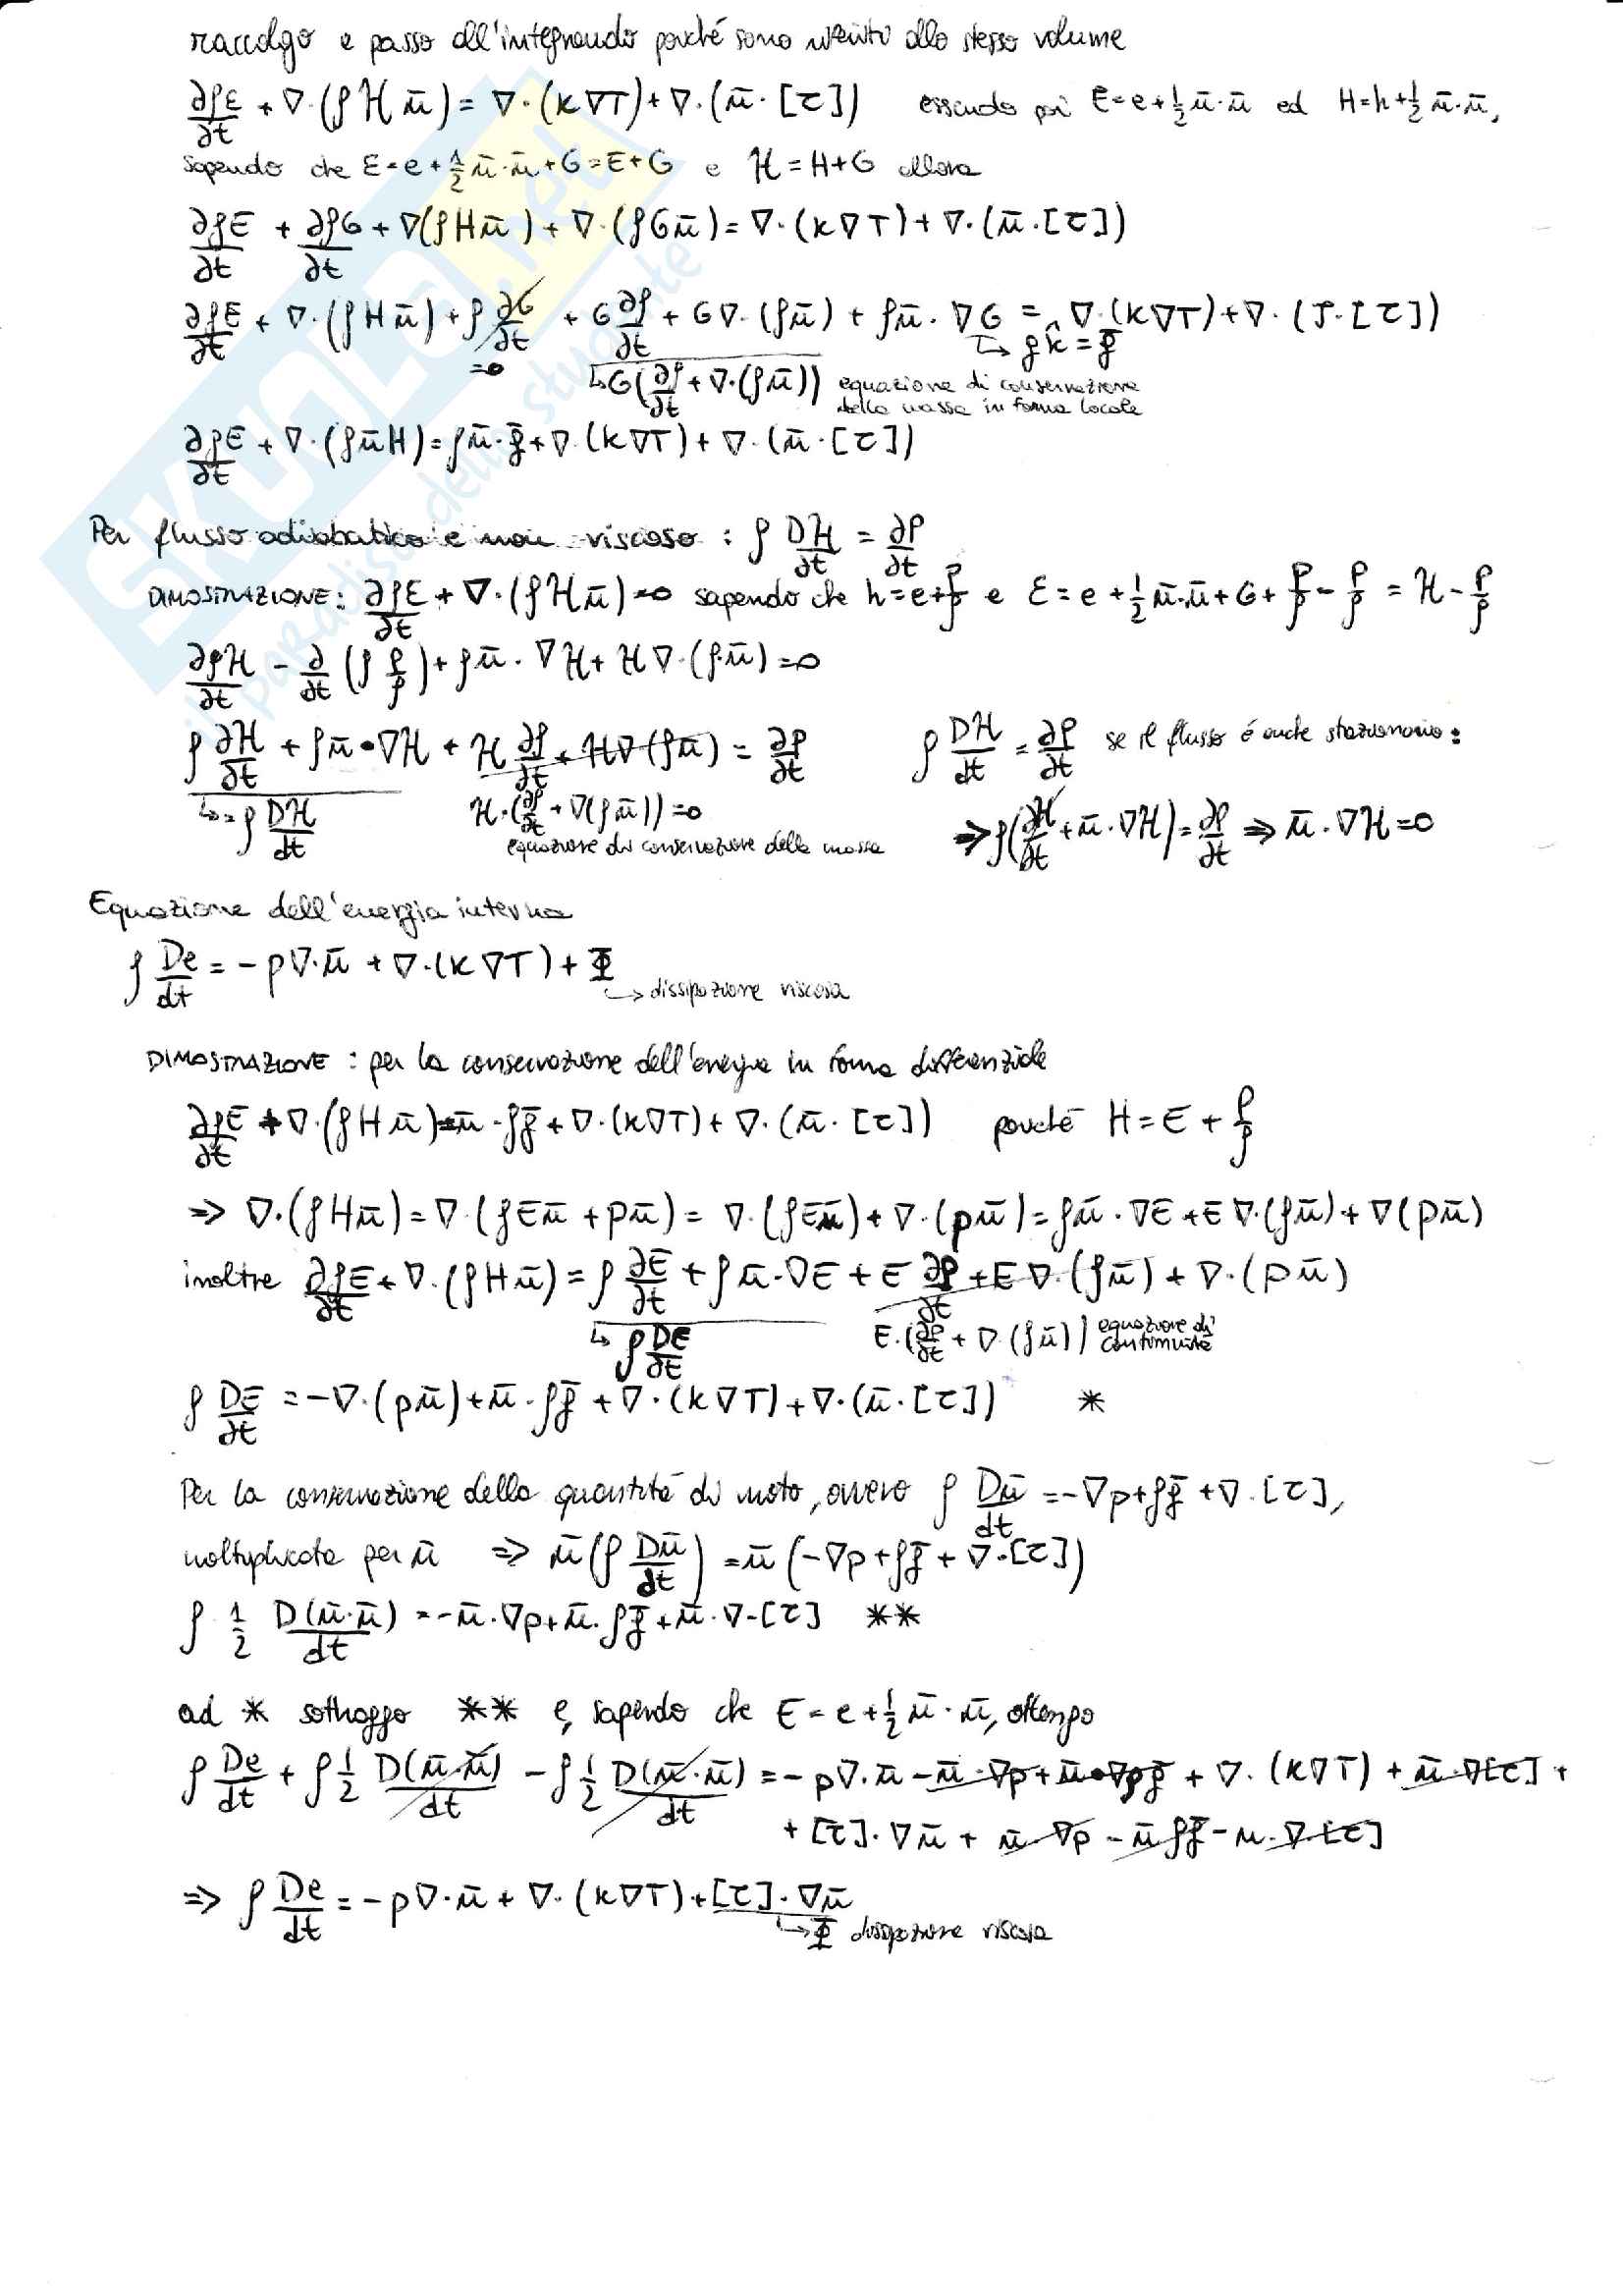 raccolgo e passo all'integrando poiché sono riferito allo stesso volume
∂ρℰ/∂t + ∇·(ρℋū) = ∇·(k∇T) + ∇·(ū·[τ]) essendo poi E = e + ½ū·ū ed H = h + ½ū·ū,
sapendo che ℰ = e + ½ū·ū + G = E + G e ℋ = H + G allora
∂ρE/∂t + ∂ρG/∂t + ∇(ρHū) + ∇·(ρGū) = ∇·(k∇T) + ∇·(ū·[τ])
∂ρE/∂t + ∇·(ρHū) + ρ∂G/∂t + G∂ρ/∂t + G∇·(ρū) + ρū·∇G = ∇·(k∇T) + ∇·(J·[τ])
=0 ↳ G(∂ρ/∂t + ∇·(ρū)) equazione di conservazione della massa in forma locale ↳ gk̂ = ḡ
∂ρE/∂t + ∇·(ρūH) = ρū·ḡ + ∇·(k∇T) + ∇·(ū·[τ])
Per flusso adiabatico e non viscoso : ρ Dℋ/∂t = ∂P/∂t
DIMOSTRAZIONE: ∂ρℰ/∂t + ∇·(ρℋū) = 0 sapendo che h = e + p/ρ e ℰ = e + ½ū·ū + G + p/ρ - p/ρ = ℋ - p/ρ
∂ρℋ/∂t - ∂/∂t(ρ p/ρ) + ρū·∇ℋ + ℋ∇·(ρū) = 0
ρ∂ℋ/∂t + ρū·∇ℋ + ℋ∂ρ/∂t + ℋ∇(ρū) = ∂p/∂t ρ Dℋ/dt = ∂p/∂t se il flusso é anche stazionario:
↳ = ρ Dℋ/dt ℋ·(∂ρ/∂t + ∇(ρū)) = 0 ⇒ ρ(∂ℋ/∂t + ū·∇ℋ) = ∂p/∂t ⇒ ū·∇ℋ = 0
equazione di conservazione della massa
Equazione dell'energia interna
ρ De/dt = -p∇·ū + ∇·(k∇T) + Φ
↳ dissipazione viscosa
DIMOSTRAZIONE : per la conservazione dell'energia in forma differenziale
∂ρE/∂t + ∇·(ρHū) = ū·ρḡ + ∇·(k∇T) + ∇·(ū·[τ]) poiché H = E + p/ρ
⇒ ∇·(ρHū) = ∇·(ρEū + pū) = ∇·(ρEū) + ∇·(pū) = ρū·∇E + E∇·(ρū) + ∇(pū)
inoltre ∂ρE/∂t + ∇·(ρHū) = ρ ∂E/∂t + ρū·∇E + E ∂ρ/∂t + E∇·(ρū) + ∇·(pū)
↳ ρ DE/∂t E·(∂ρ/∂t + ∇·(ρū)) equazione di continuità
ρ DE/∂t = -∇·(pū) + ū·ρḡ + ∇·(k∇T) + ∇·(ū·[τ]) *
Per la conservazione della quantità di moto, ovvero ρ Dū/dt = -∇p + ρḡ + ∇·[τ],
moltiplicata per ū ⇒ ū(ρ Dū/dt) = ū(-∇p + ρḡ + ∇·[τ])
ρ ½ D(ū·ū)/dt = -ū·∇p + ū·ρḡ + ū·∇·[τ] **
ad * sottraggo ** e, sapendo che E = e + ½ū·ū, ottengo
ρ De/dt + ρ½ D(ū·ū)/dt - ρ½ D(ū·ū)/dt = -p∇·ū - ū·∇p + ū·ρḡ + ∇·(k∇T) + ū·∇[τ] +
+ [τ]·∇ū + ū·∇p - ū·ρḡ - u·∇·[τ]
⇒ ρ De/dt = -p∇·ū + ∇·(k∇T) + [τ]·∇ū
↳ Φ dissipazione viscosa
SKUOLA.net
il paradiso dello studente